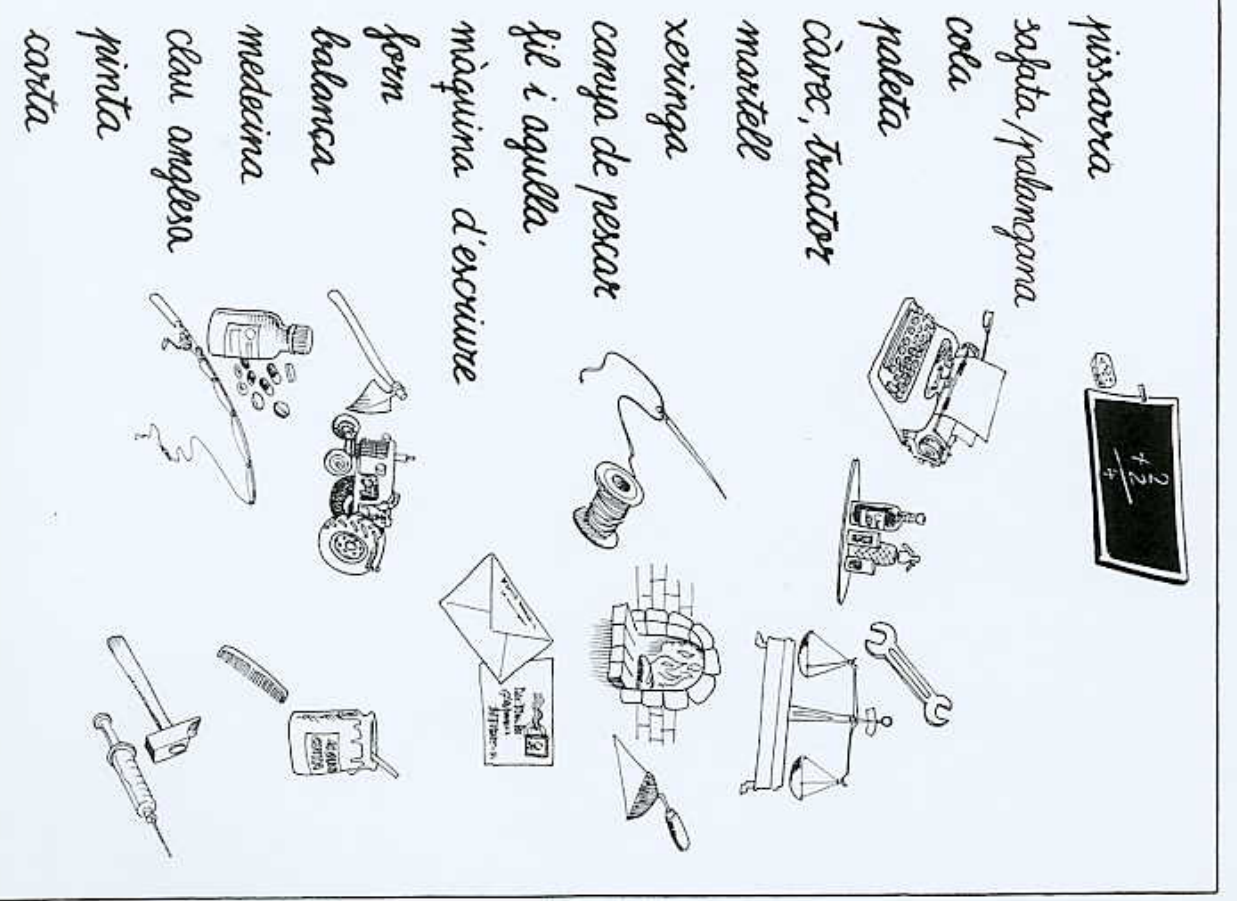 pissarra
safata/palangana
cola
paleta
càvec, tractor
martell
xeringa
canya de pescar
fil i agulla
màquina d'escriure
forn
balança
medecina
clau anglesa
pinta
carta
2
+ 2
4